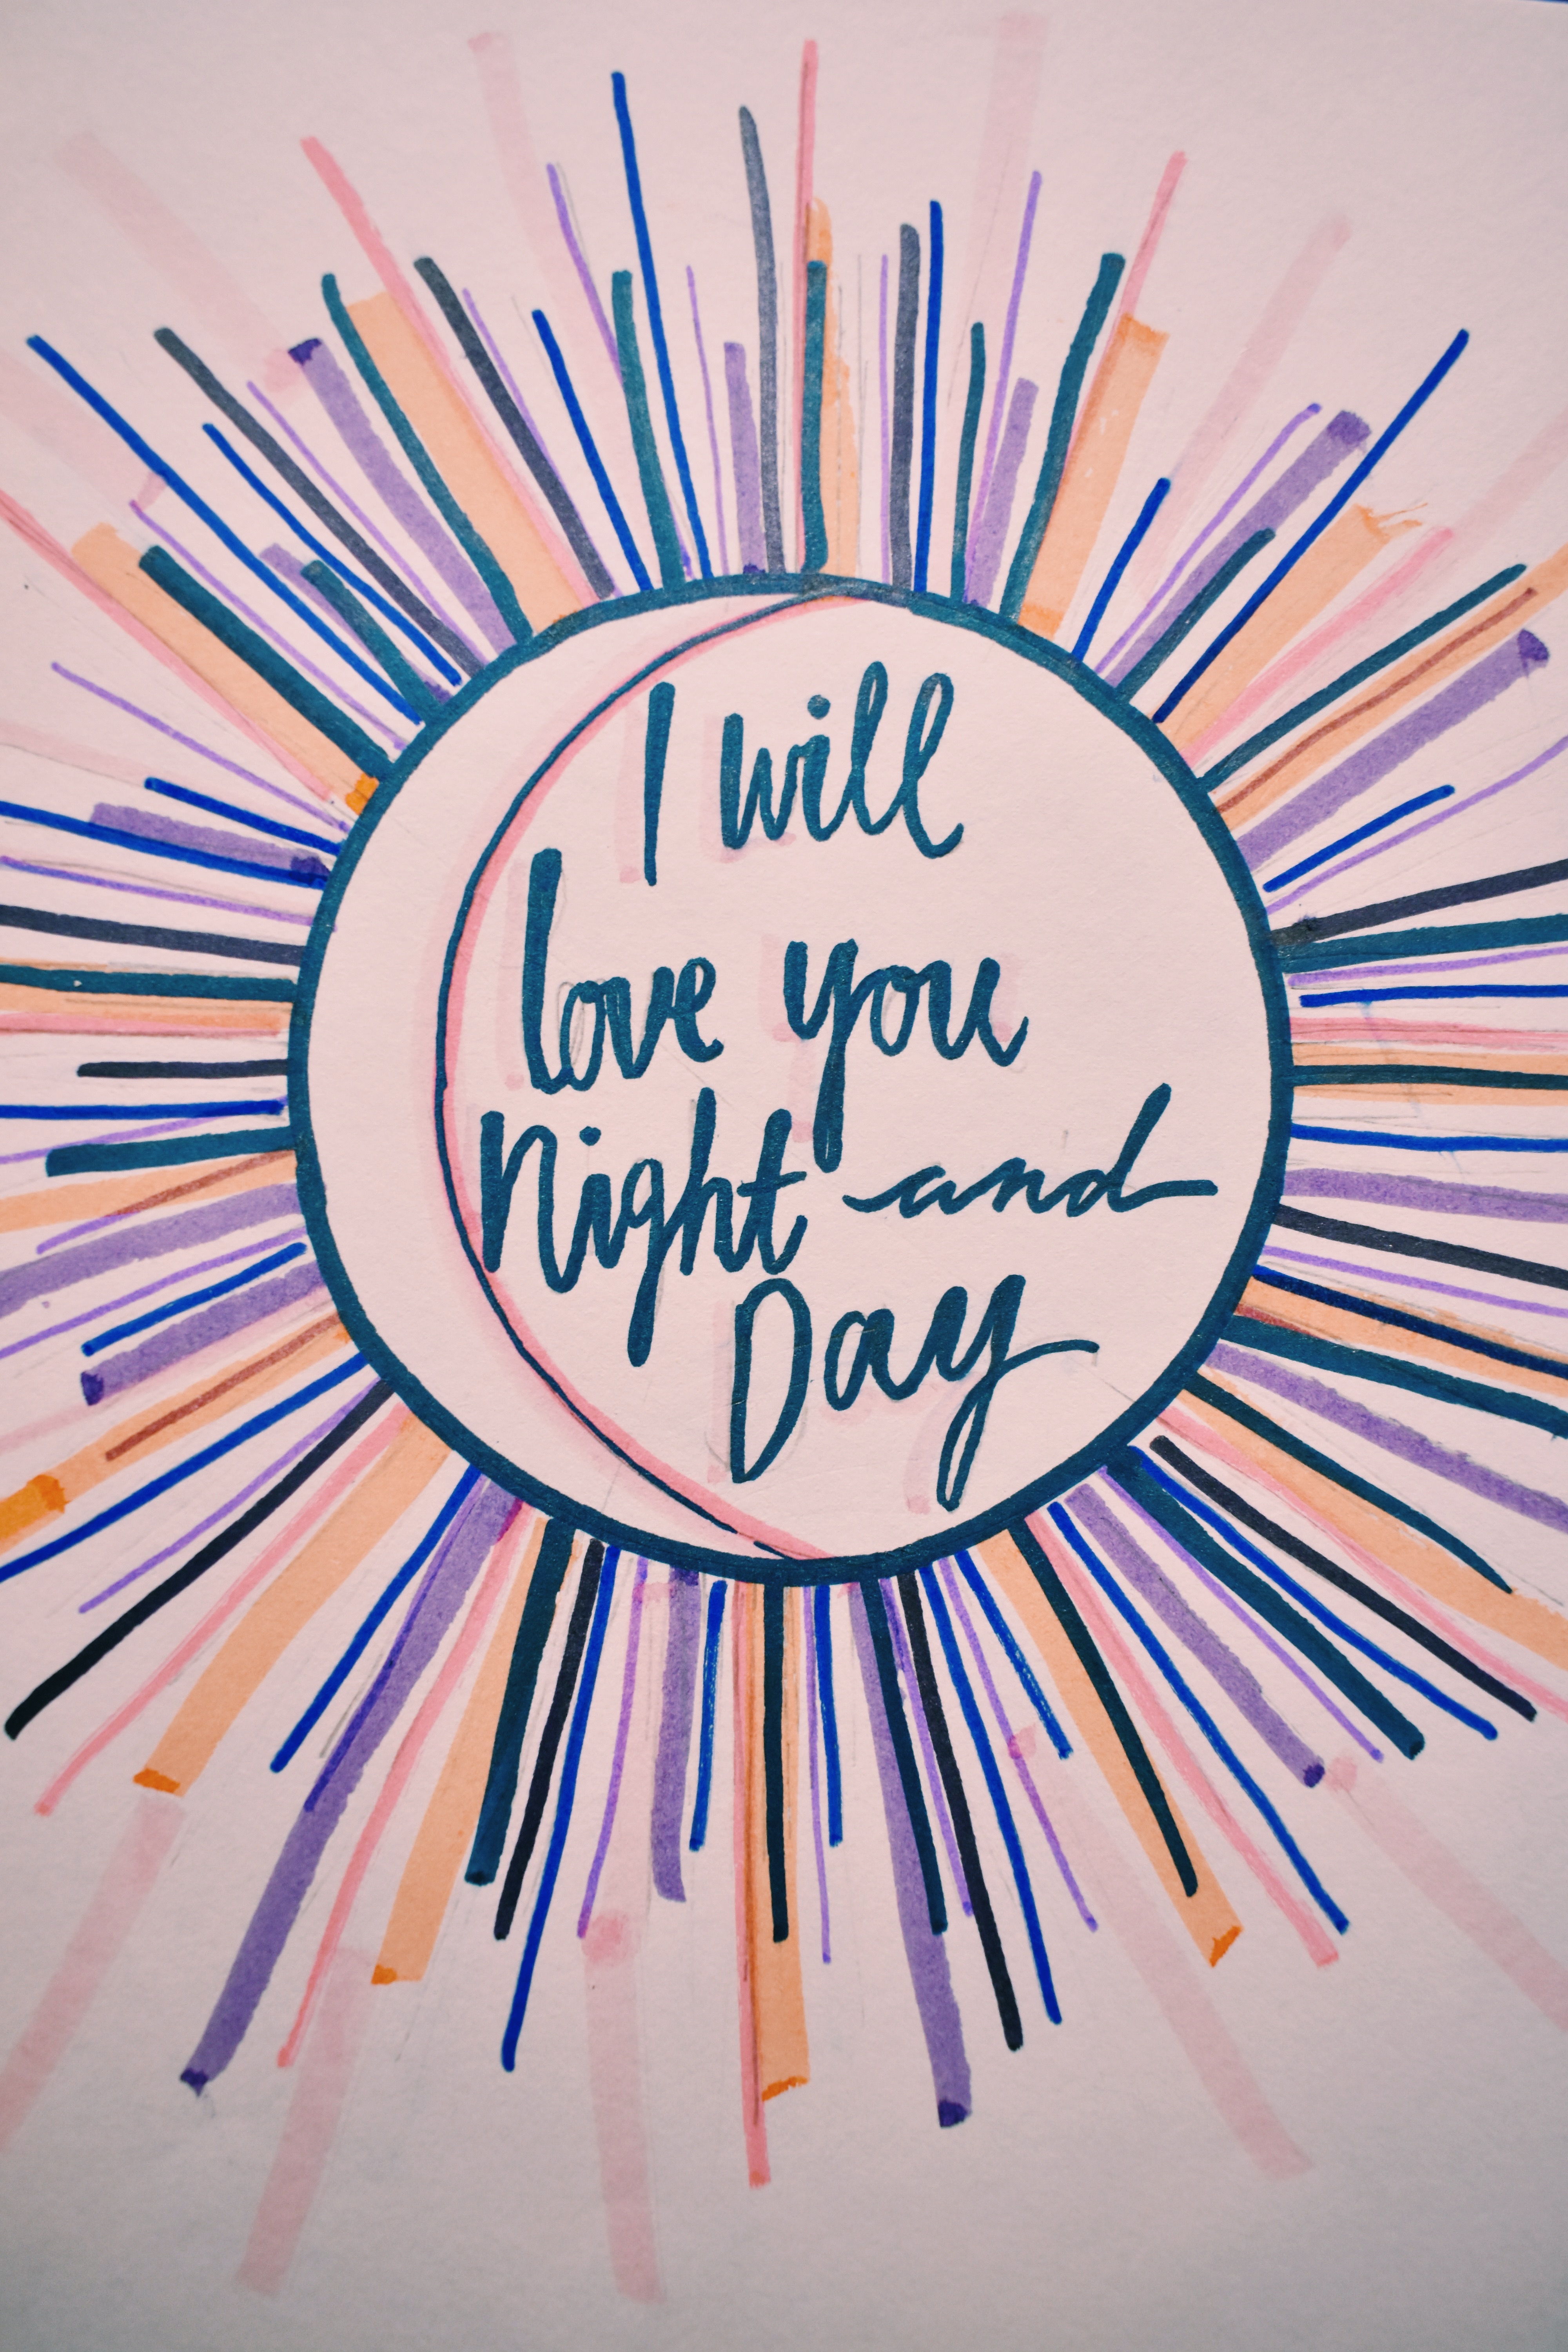 I will
love you
Night and
Day